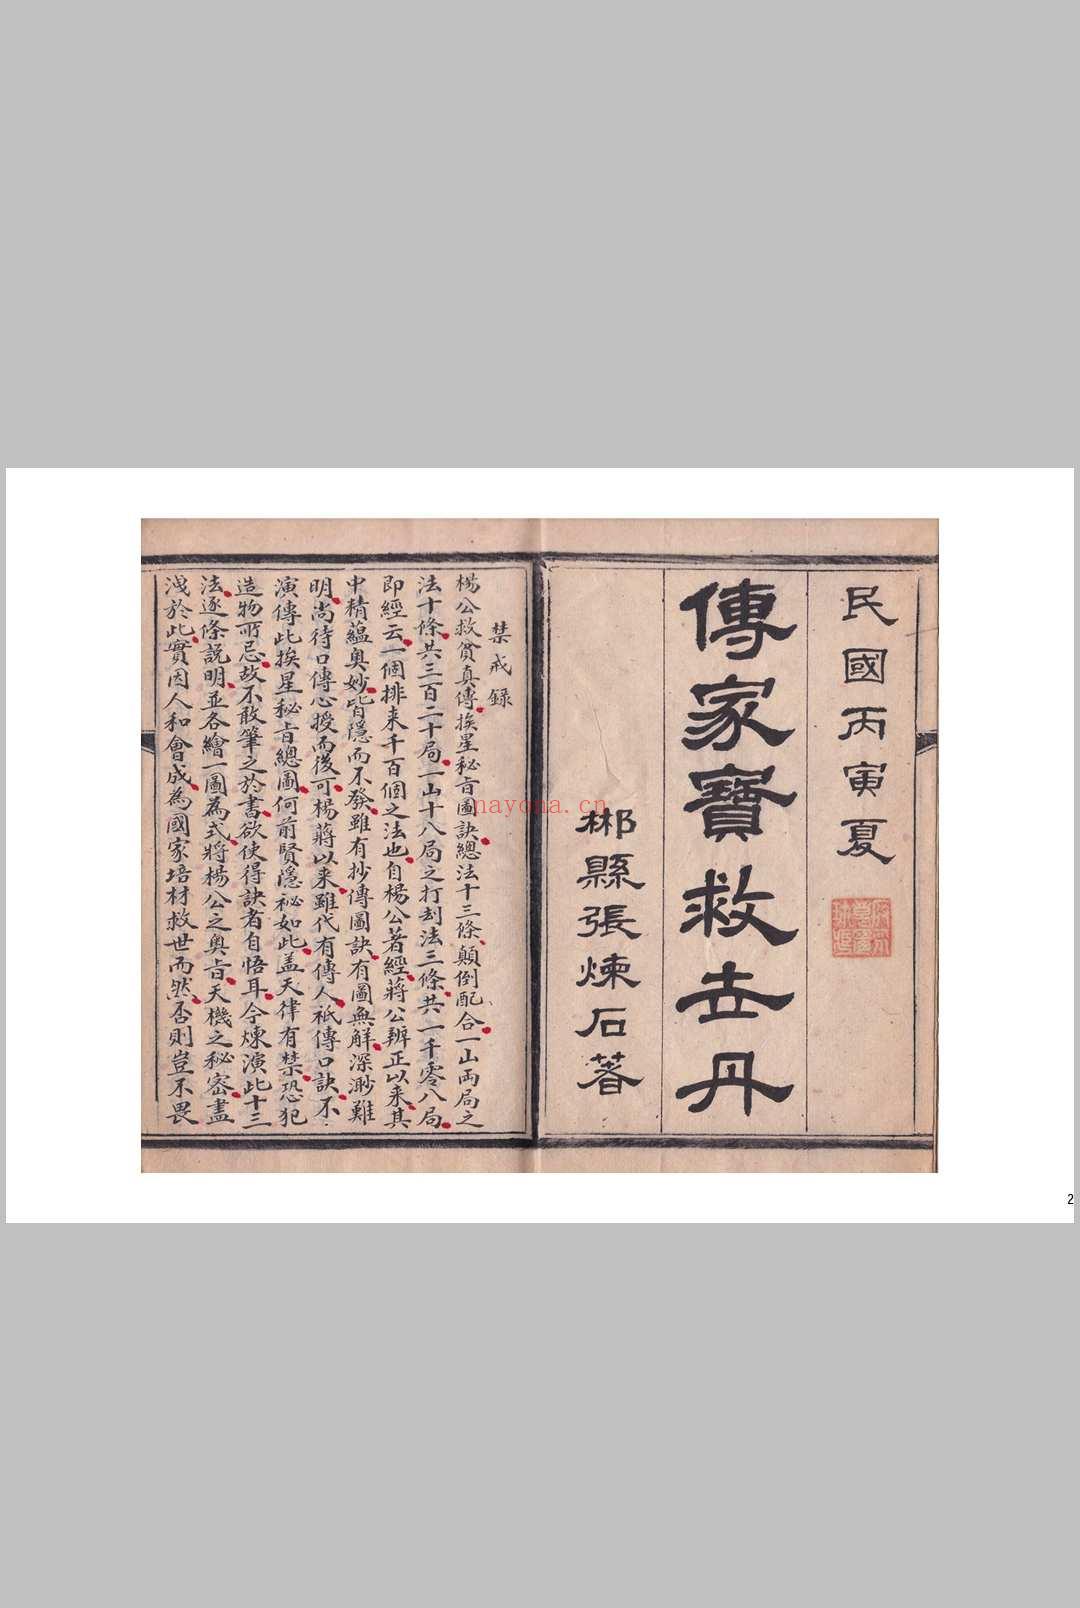 民國丙寅夏
傳家寶救世丹
郴縣張煉石著
禁戒錄
楊公救貧真傳挨星秘旨圖訣總法十三條顛倒配合一山兩局之
法十條共三百二十局一山十八局之打刼法三條共一千零八局
即經云一個排來千百個之法也自楊公著經蔣公辨正以来其
中精蘊奥妙皆隱而不發雖有抄傳圖訣有圖無解深渺難
明尚待口傳心授而後可楊蔣以来雖代有傳人祇傳口訣不
演傳此挨星秘旨總圖何前賢隱祕如此盖天律有禁恐犯
造物所忌故不敢筆之於書欲使得訣者自悟耳今煉演此十三
法逐條説明並各繪一圖為式將楊公之奥旨天機之秘宻盡
洩於此實因人和會成為國家培材救世而然否則豈不畏
nayona.cn
2